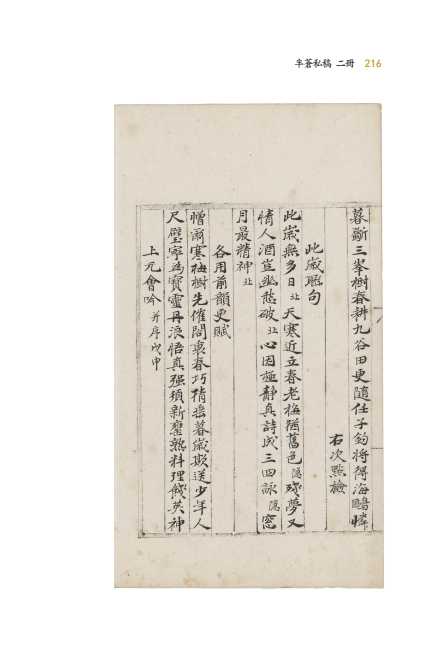 半蒼私稿 二冊 216
暮斸三峯樹春耕九谷田更隨任子釣將得海鷗憐
右次點檢
此歲聯句
此歲無多日北天寒近立春老梅猶舊色隱殘夢又
情人酒豈幽愁破北心因極靜真詩成三四詠隱窓
月最精神北
各用前韻更賦
憎爾寒梅樹先催閤裏春巧猜
暮歲欺送少年人
尺璧寧為寶靈丹浪悟真强項新
熟料理餞英神
上元會吟 并序戊申